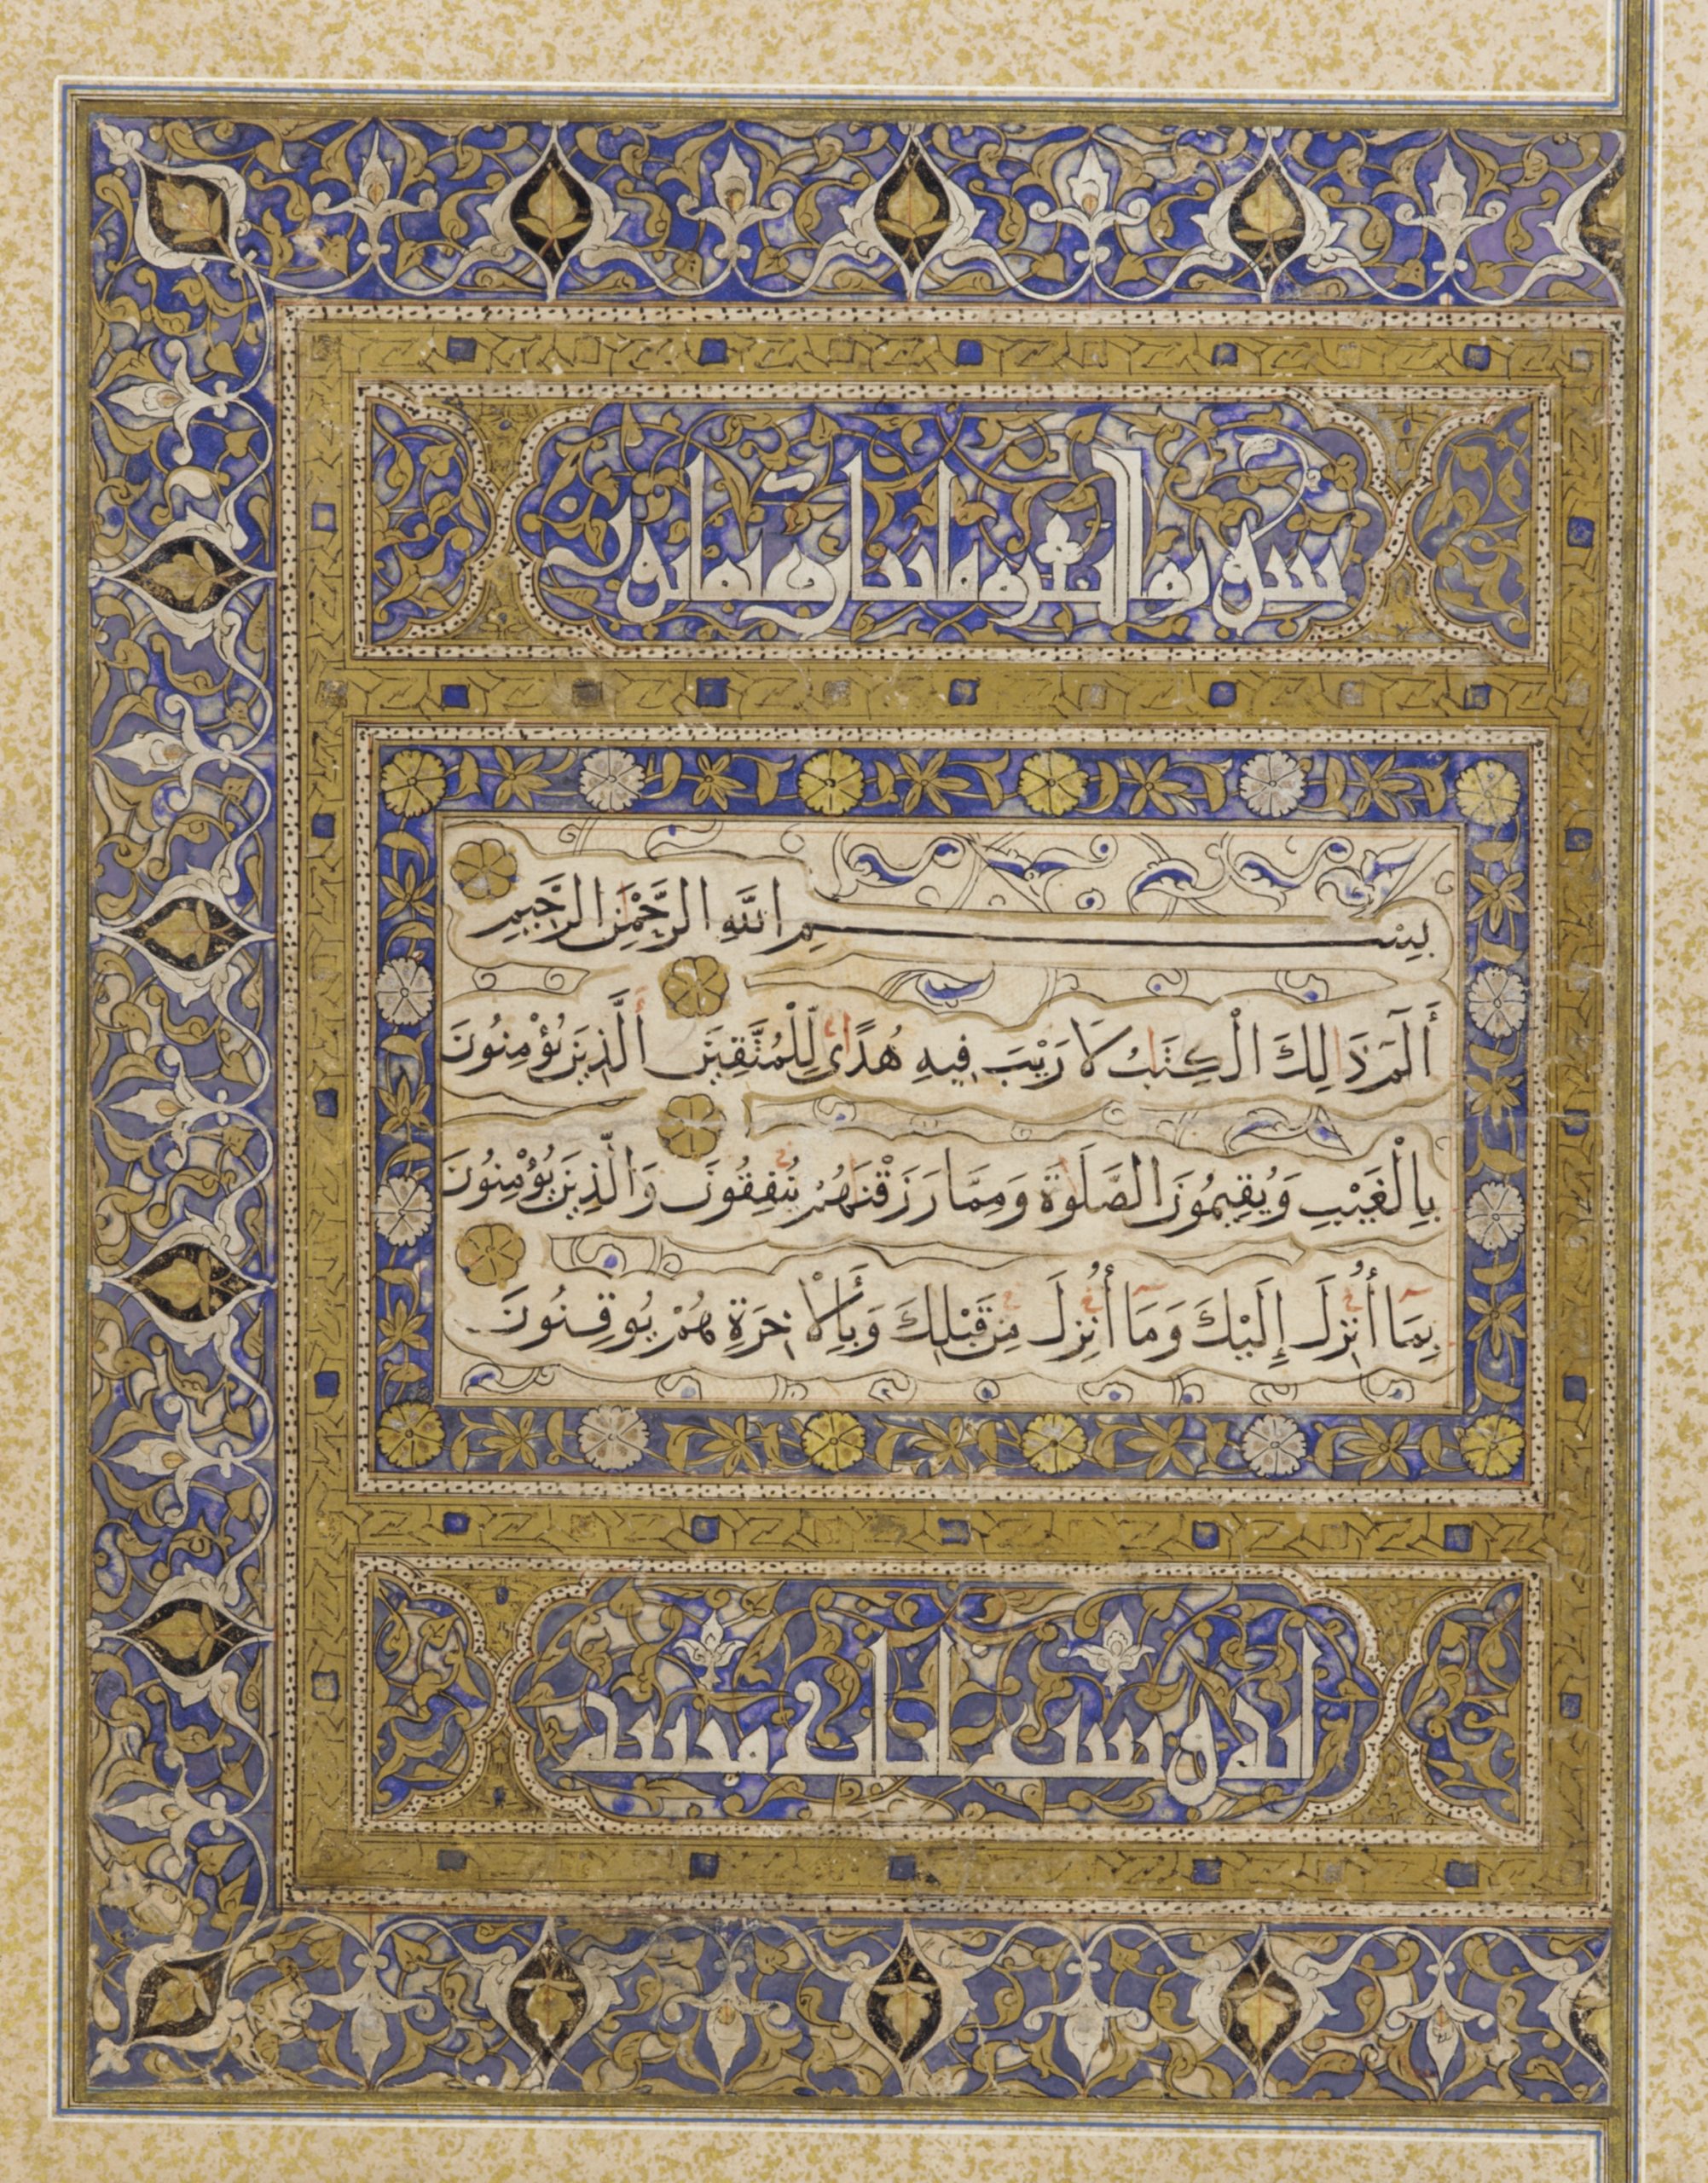 سورة البقرة مائتان وثمانون
بِسْمِ اللَّهِ الرَّحْمٰنِ الرَّحِيمِ
أَلٓمٓ ذَالِكَ الْكِتَٰبُ لَا رَيْبَ فِيهِ هُدًى لِّلْمُتَّقِينَ الَّذِينَ يُؤْمِنُونَ
بِالْغَيْبِ وَيُقِيمُونَ الصَّلَوٰةَ وَمِمَّا رَزَقْنَٰهُمْ يُنْفِقُونَ وَالَّذِينَ يُؤْمِنُونَ
بِمَا أُنْزِلَ إِلَيْكَ وَمَا أُنْزِلَ مِنْ قَبْلِكَ وَبِالْأَخِرَةِ هُمْ يُوقِنُونَ